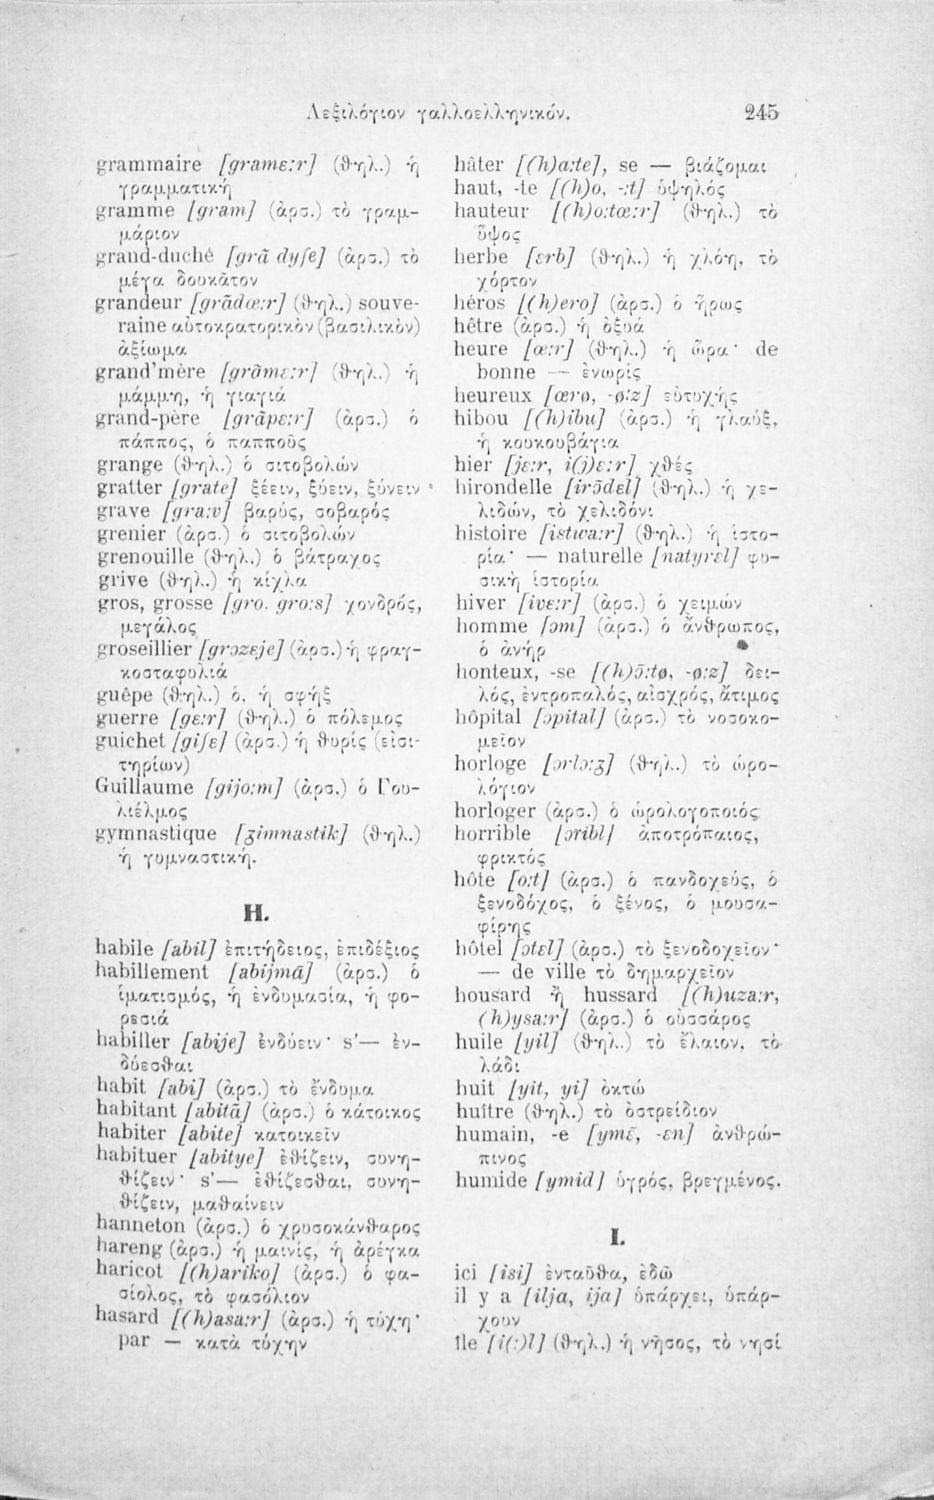 Λεξιλόγιον γαλλοελληνικόν. 245
grammaire [gramɛ:r] (θηλ.) ἡ
γραμματική
gramme [gram] (ἀρσ.) τὸ γραμ-
μάριον
grand-duché [grã dyʃe] (ἀρσ.) τὸ
μέγα δουκᾶτον
grandeur [grãdœ:r] (θηλ.) souve-
raine αὐτοκρατορικὸν (βασιλικὸν)
ἀξίωμα
grand'mère [grãmɛ:r] (θηλ.) ἡ
μάμμη, ἡ γιαγιά
grand-père [grãpɛ:r] (ἀρσ.) ὁ
πάππος, ὁ παπποῦς
grange (θηλ.) ὁ σιτοβολών
gratter [grate] ξέειν, ξύειν, ξύνειν
grave [gra:v] βαρύς, σοβαρός
grenier (ἀρσ.) ὁ σιτοβολών
grenouille (θηλ.) ὁ βάτραχος
grive (θηλ.) ἡ κίχλα
gros, grosse [gro, gro:s] χονδρός,
μεγάλος
groseillier [grozɛje] (ἀρσ.) ἡ φραγ-
κοσταφυλιά
guêpe (θηλ.) ὁ, ἡ σφήξ
guerre [gɛ:r] (θηλ.) ὁ πόλεμος
guichet [giʃɛ] (ἀρσ.) ἡ θυρίς (εἰσι-
τηρίων)
Guillaume [gijo:m] (ἀρσ.) ὁ Γου-
λιέλμος
gymnastique [ʒimnastik] (θηλ.)
ἡ γυμναστική.
H.
habile [abil] ἐπιτήδειος, ἐπιδέξιος
habillement [abijmã] (ἀρσ.) ὁ
ἱματισμός, ἡ ἐνδυμασία, ἡ φο-
ρεσιά
habiller [abije] ἐνδύειν· s'— ἐν-
δύεσθαι
habit [abi] (ἀρσ.) τὸ ἔνδυμα
habitant [abitã] (ἀρσ.) ὁ κάτοικος
habiter [abite] κατοικεῖν
habituer [abitye] ἐθίζειν, συνη-
θίζειν· s'— ἐθίζεσθαι, συνη-
θίζειν, μαθαίνειν
hanneton (ἀρσ.) ὁ χρυσοκάνθαρος
hareng (ἀρσ.) ἡ μαινίς, ἡ ἀρέγκα
haricot [(h)ariko] (ἀρσ.) ὁ φα-
σίολος, τὸ φασόλιον
hasard [(h)asa:r] (ἀρσ.) ἡ τύχη·
par — κατὰ τύχην
hâter [(h)a:te], se — βιάζομαι
haut, -te [(h)o, -:t] ὑψηλός
hauteur [(h)o:tœ:r] (θηλ.) τὸ
ὕψος
herbe [ɛrb] (θηλ.) ἡ χλόη, τὸ
χόρτον
héros [(h)ero] (ἀρσ.) ὁ ἥρως
hêtre (ἀρσ.) ἡ ὀξυά
heure [œ:r] (θηλ.) ἡ ὥρα· de
bonne — ἐνωρίς
heureux [œrø, -ø:z] εὐτυχής
hibou [(h)ibu] (ἀρσ.) ἡ γλαύξ,
ἡ κουκουβάγια
hier [jɛ:r, i(j)ɛ:r] χθές
hirondelle [irõdɛl] (θηλ.) ἡ χε-
λιδών, τὸ χελιδόνι
histoire [istwa:r] (θηλ.) ἡ ἱστο-
ρία· — naturelle [natyrɛl] φυ-
σικὴ ἱστορία
hiver [ivɛ:r] (ἀρσ.) ὁ χειμών
homme [ɔm] (ἀρσ.) ὁ ἄνθρωπος,
ὁ ἀνήρ
honteux, -se [(h)õ:tø, -ø:z] δει-
λός, ἐντροπαλός, αἰσχρός, ἄτιμος
hôpital [ɔpital] (ἀρσ.) τὸ νοσοκο-
μεῖον
horloge [ɔrlɔ:ʒ] (θηλ.) τὸ ὡρο-
λόγιον
horloger (ἀρσ.) ὁ ὡρολογοποιός
horrible [ɔribl] ἀποτρόπαιος,
φρικτός
hôte [o:t] (ἀρσ.) ὁ πανδοχεύς, ὁ
ξενοδόχος, ὁ ξένος, ὁ μουσα-
φίρης
hôtel [ɔtɛl] (ἀρσ.) τὸ ξενοδοχεῖον·
— de ville τὸ δημαρχεῖον
housard ἢ hussard [(h)uza:r,
(h)ysa:r] (ἀρσ.) ὁ οὐσσάρος
huile [yil] (θηλ.) τὸ ἔλαιον, τὸ
λάδι
huit [yit, yi] ὀκτώ
huître (θηλ.) τὸ ὀστρείδιον
humain, -e [ymɛ̃, -ɛn] ἀνθρώ-
πινος
humide [ymid] ὑγρός, βρεγμένος.
I.
ici [isi] ἐνταῦθα, ἐδῶ
il y a [ilja, ija] ὑπάρχει, ὑπάρ-
χουν
île [i(:)l] (θηλ.) ἡ νῆσος, τὸ νησί